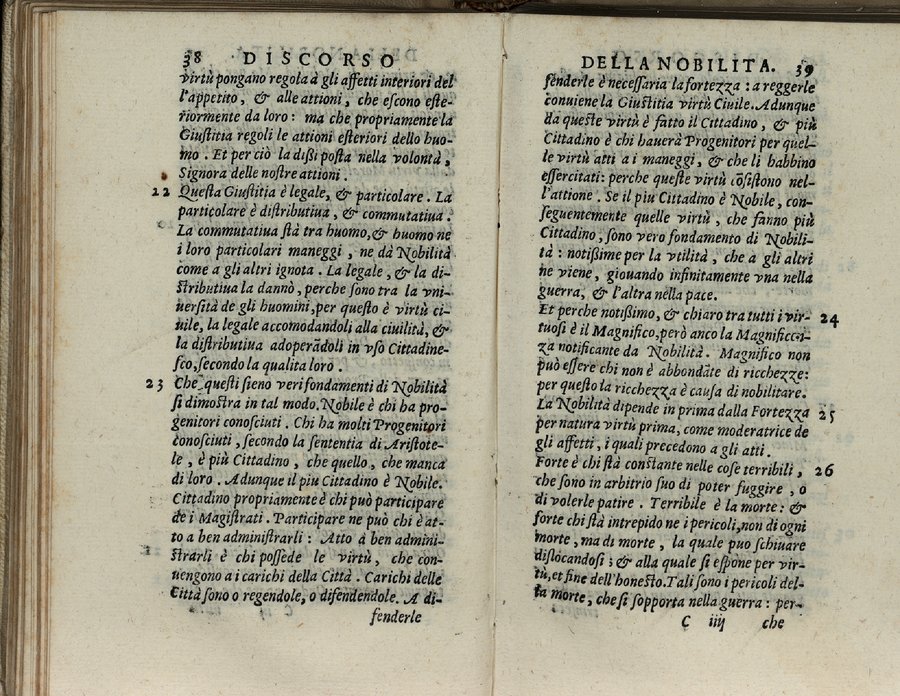 38 DISCORSO
virtù pongano regola à gli affetti interiori del
l'appetito, & alle attioni, che escono este-
riormente da loro: ma che propriamente la
Giustitia regoli le attioni esteriori dello huo-
mo. Et per ciò la dißi posta nella volontà,
Signora delle nostre attioni.
22 Questa Giustitia è legale, & particolare. La
particolare è distributiua, & commutatiua.
La commutatiua stà tra huomo, & huomo ne
i loro particolari maneggi, ne dà Nobilità
come a gli altri ignota. La legale, & la di-
stributiua la dannò, perche sono tra la vni-
uersità de gli huomini, per questo è virtù ci-
uile, la legale accomodandoli alla ciuilità, &
la distributiua adoperãdoli in vso Cittadine-
sco, secondo la qualita loro.
23 Che questi sieno veri fondamenti di Nobilità
si dimostra in tal modo. Nobile è chi ha pro-
genitori conosciuti. Chi ha molti Progenitori
conosciuti, secondo la sententia di Aristote-
le, è più Cittadino, che quello, che manca
di loro. Adunque il piu Cittadino è Nobile.
Cittadino propriamente è chi può participare
de i Magistrati. Participare ne può chi è at-
to a ben administrarli: Atto à ben admini-
strarli è chi possede le virtù, che con-
uengono a i carichi della Città. Carichi delle
Città sono o regendole, o difendendole. A di-
fenderle
DELLA NOBILITA. 39
fenderle è necessaria la fortezza: a reggerle
conuiene la Giustitia virtù Ciuile. Adunque
da queste virtù è fatto il Cittadino, & più
Cittadino è chi hauerà Progenitori per quel-
le virtù atti a i maneggi, & che li habbino
essercitati: perche queste virtù cõsistono nel-
l'attione. Se il piu Cittadino è Nobile, con-
seguentemente quelle virtù, che fanno più
Cittadino, sono vero fondamento di Nobili-
tà: notißime per la vtilità, che a gli altri
ne viene, giouando infinitamente vna nella
guerra, & l'altra nella pace.
Et perche notißimo, & chiaro tra tutti i vir- 24
tuosi è il Magnifico, però anco la Magnificen-
za notificante da Nobilità. Magnifico non
può essere chi non è abbondãte di ricchezze:
per questo la ricchezza è causa di nobilitare.
La Nobilità dipende in prima dalla Fortezza 25
per natura virtù prima, come moderatrice de
gli affetti, i quali precedono a gli atti.
Forte è chi stà constante nelle cose terribili, 26
che sono in arbitrio suo di poter fuggire, o
di volerle patire. Terribile è la morte: &
forte chi stà intrepido ne i pericoli, non di ogni
morte, ma di morte, la quale puo schiuare
dislocandosi; & alla quale si espone per vir-
tù, et fine dell'honesto. Tali sono i pericoli del-
la morte, che si sopporta nella guerra: per-
C iiij che